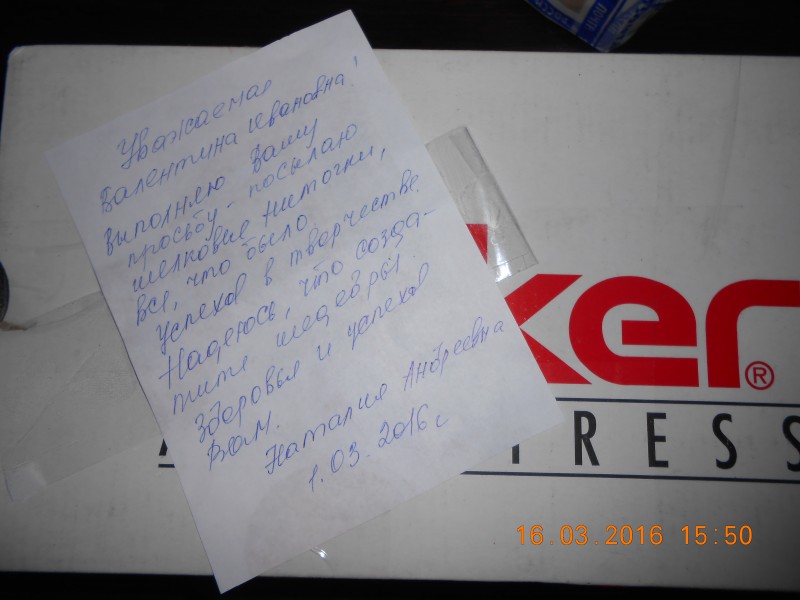 Уважаемая
Валентина Ивановна!
выполняю Вашу
просьбу - посылаю
шелковые ниточки,
все, что было
Успехов в творчестве.
Надеюсь, что созда-
тите шедевры.
Здоровья и успехов
Вам.
Наталия Андреевна
1.03.2016г
ker®
PRESS
16.03.2016 15:50